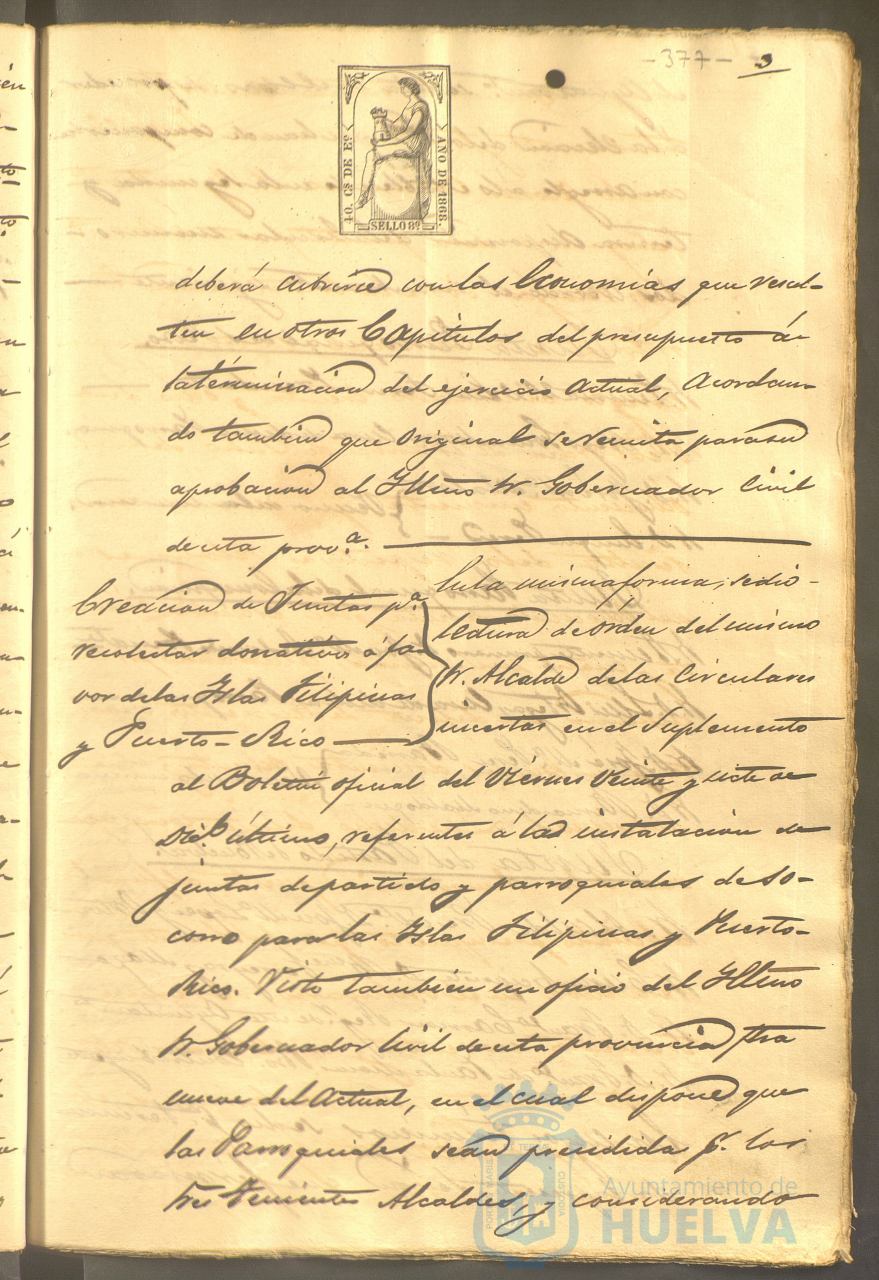 -377-
3
40. Cs DE Eo.
AÑO DE 1868.
SELLO 8º
deberá cubrirse con las Economías que resul-
ten en otros Capítulos del presupuesto á
la términacion del ejercicio actual, acordan-
do tambien que original se remita para su
aprobacion al Illmo Sr. Gobernador Civil
de esta prova.
Creacion de Juntas pa.
recolectar donativos á fa-
vor de las Islas Filipinas
y Puerto-Rico
En la misma forma, se dio
lectura de orden del mismo
Sr. Alcalde de las Circulares
incertas en el Suplemento
al Boletin oficial del Viérnes Veinte y siete de
Dice. último, referentes á la instalacion de
juntas de partido y parroquiales de So-
corro para las Islas Filipinas y Puerto-
Rico. Visto tambien un oficio del Illmo
Sr. Gobernador Civil de esta provincia fha
nueve del actual, en el cual dispone que
las Parroquiales sean presididas pr. los
tres tenientes Alcaldes, y considerando
Ayuntamiento de
HUELVA